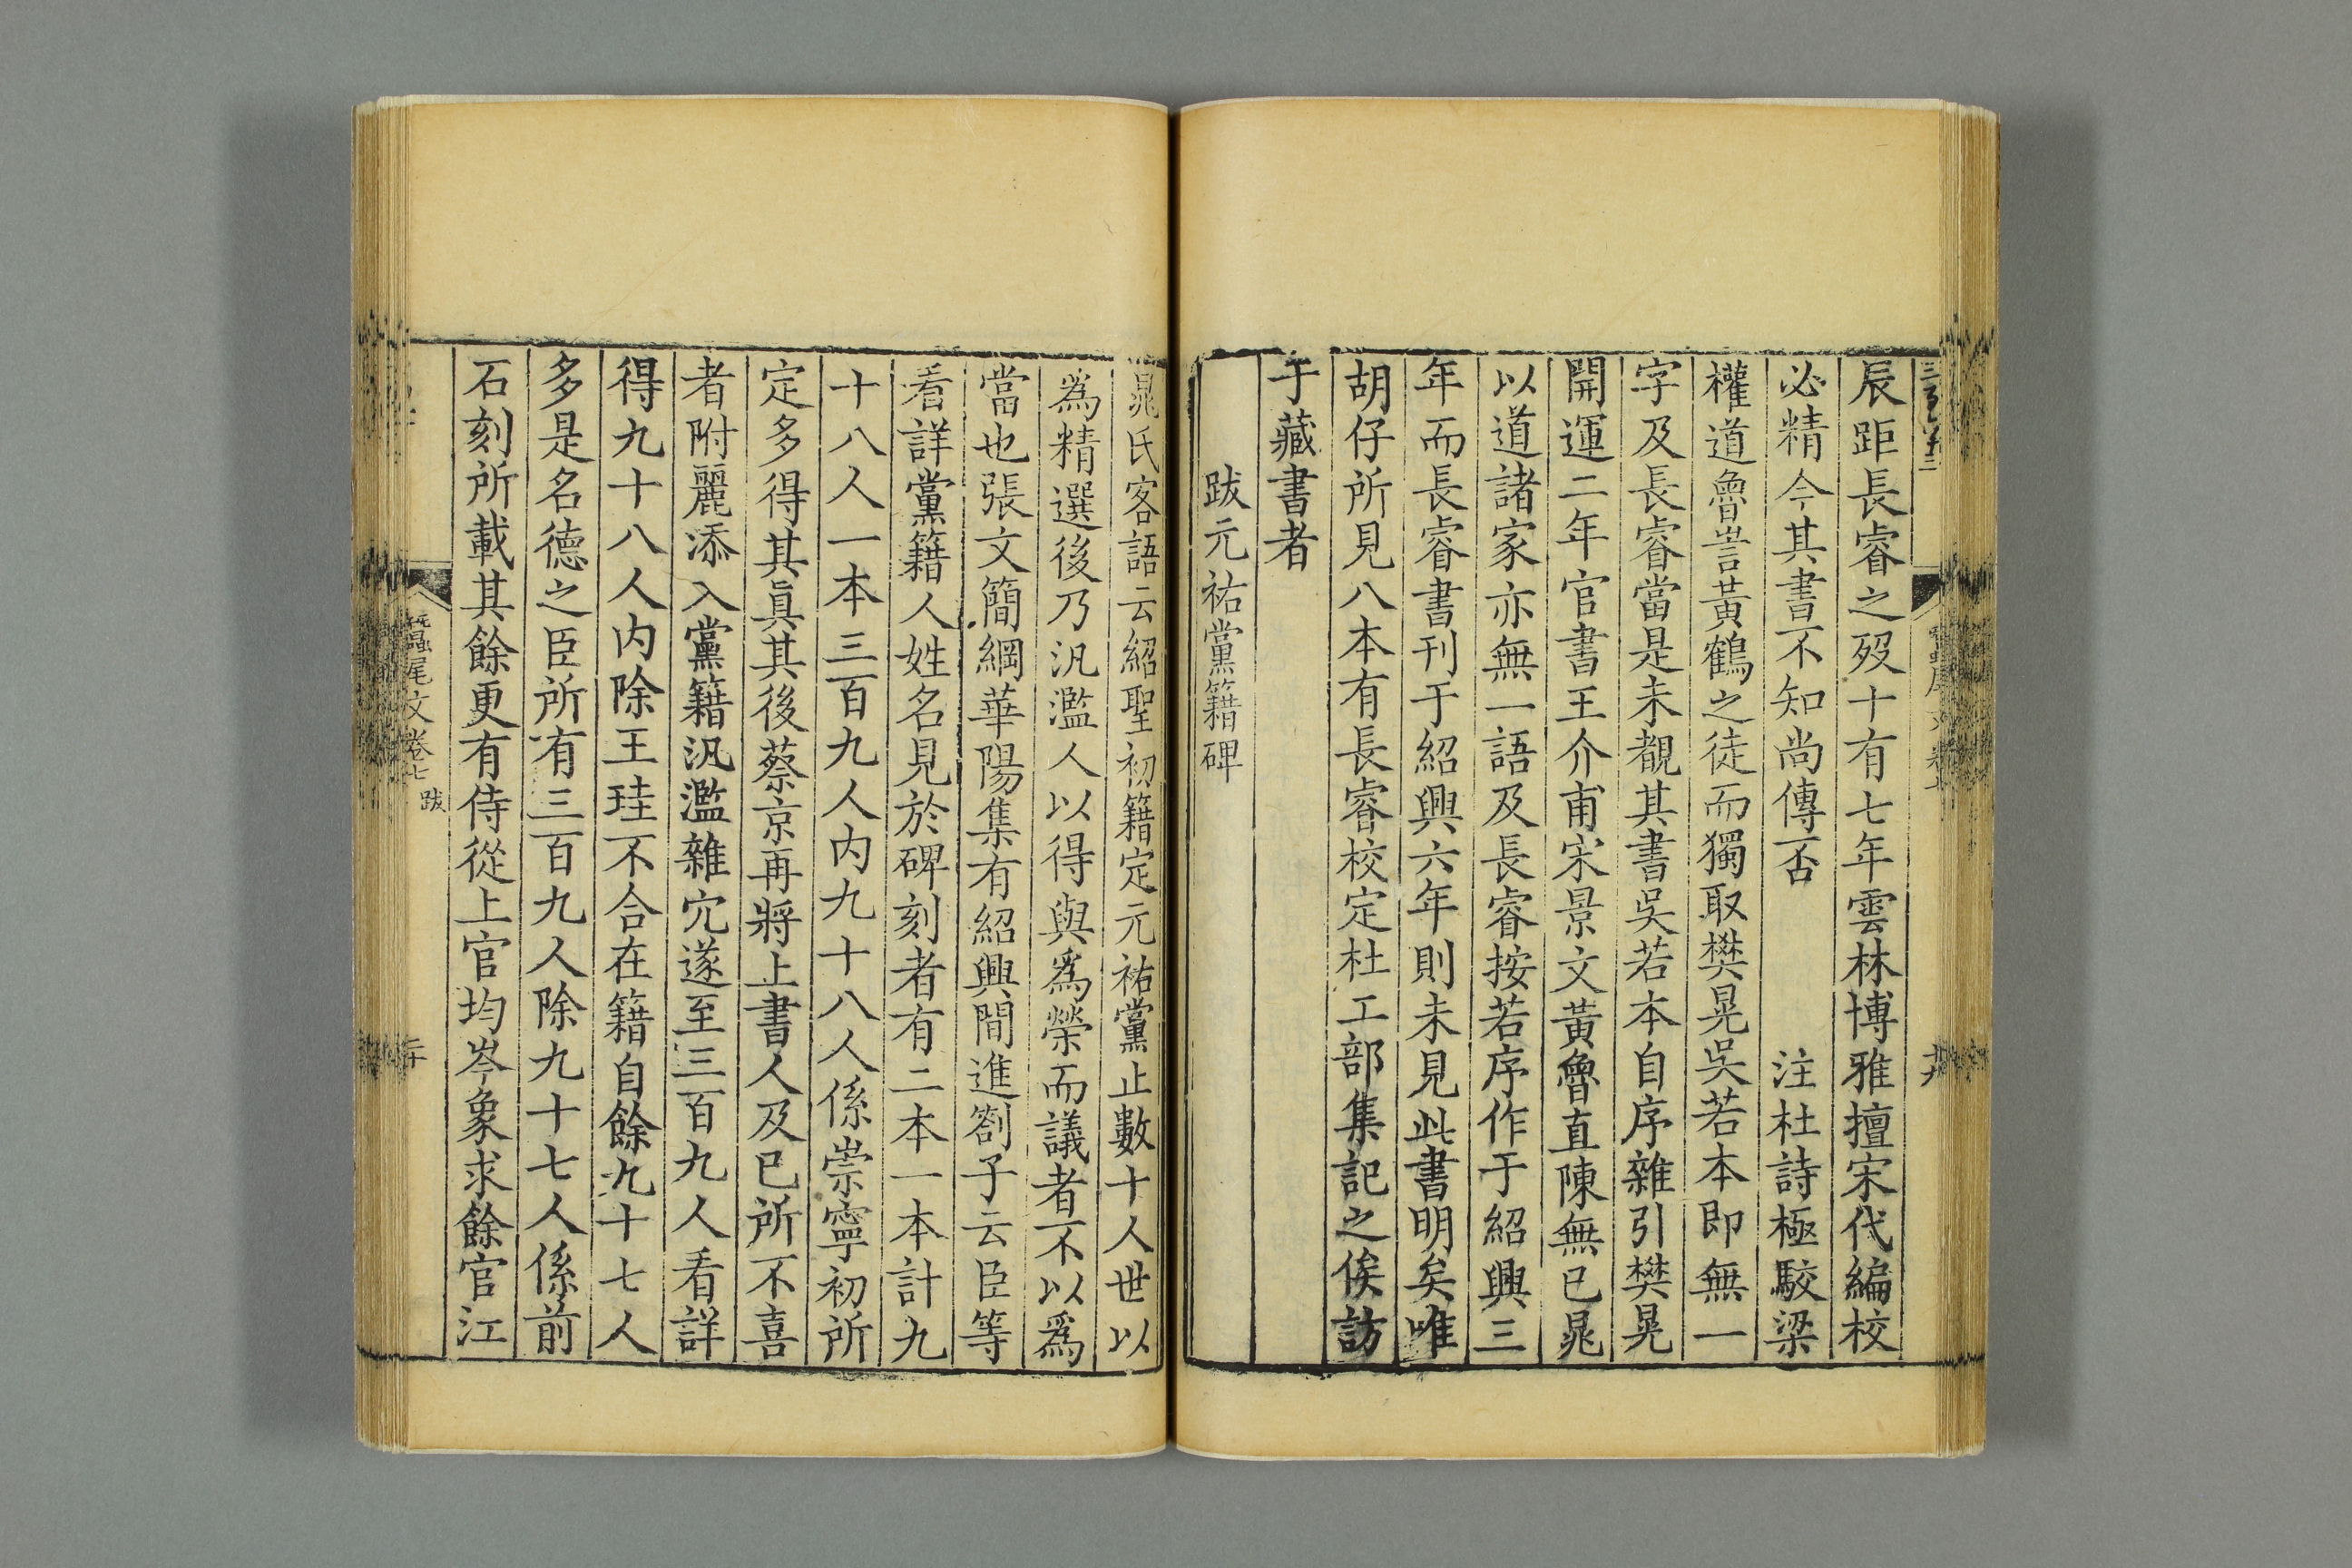 辰距長睿之歿十有七年雲林博雅擅宋代編校
必精今其書不知尚傳否 注杜詩極駮梁
權道魯訔黃鶴之徒而獨取樊晃吳若本即無一
字及長睿當是未覩其書吳若本自序雜引樊晃
開運二年官書王介甫宋景文黃魯直陳無已晁
以道諸家亦無一語及長睿按若序作于紹興三
年而長睿書刊于紹興六年則未見此書明矣唯
胡仔所見八本有長睿校定杜工部集記之俟訪
于藏書者
跋元祐黨籍碑
晁氏客語云紹聖初籍定元祐黨止數十人世以
為精選後乃汎濫人以得與爲榮而議者不以爲
當也張文簡綱華陽集有紹興間進劄子云臣等
看詳黨籍人姓名見於碑刻者有二本一本計九
十八人一本三百九人内九十八人係崇寧初所
定多得其眞其後蔡京再將上書人及已所不喜
者附麗添入黨籍汎濫雜宂遂至三百九人看詳
得九十八人内除王珪不合在籍自餘九十七人
多是名德之臣所有三百九人除九十七人係前
石刻所載其餘更有侍從上官均岑象求餘官江
蠶尾文卷七 跋